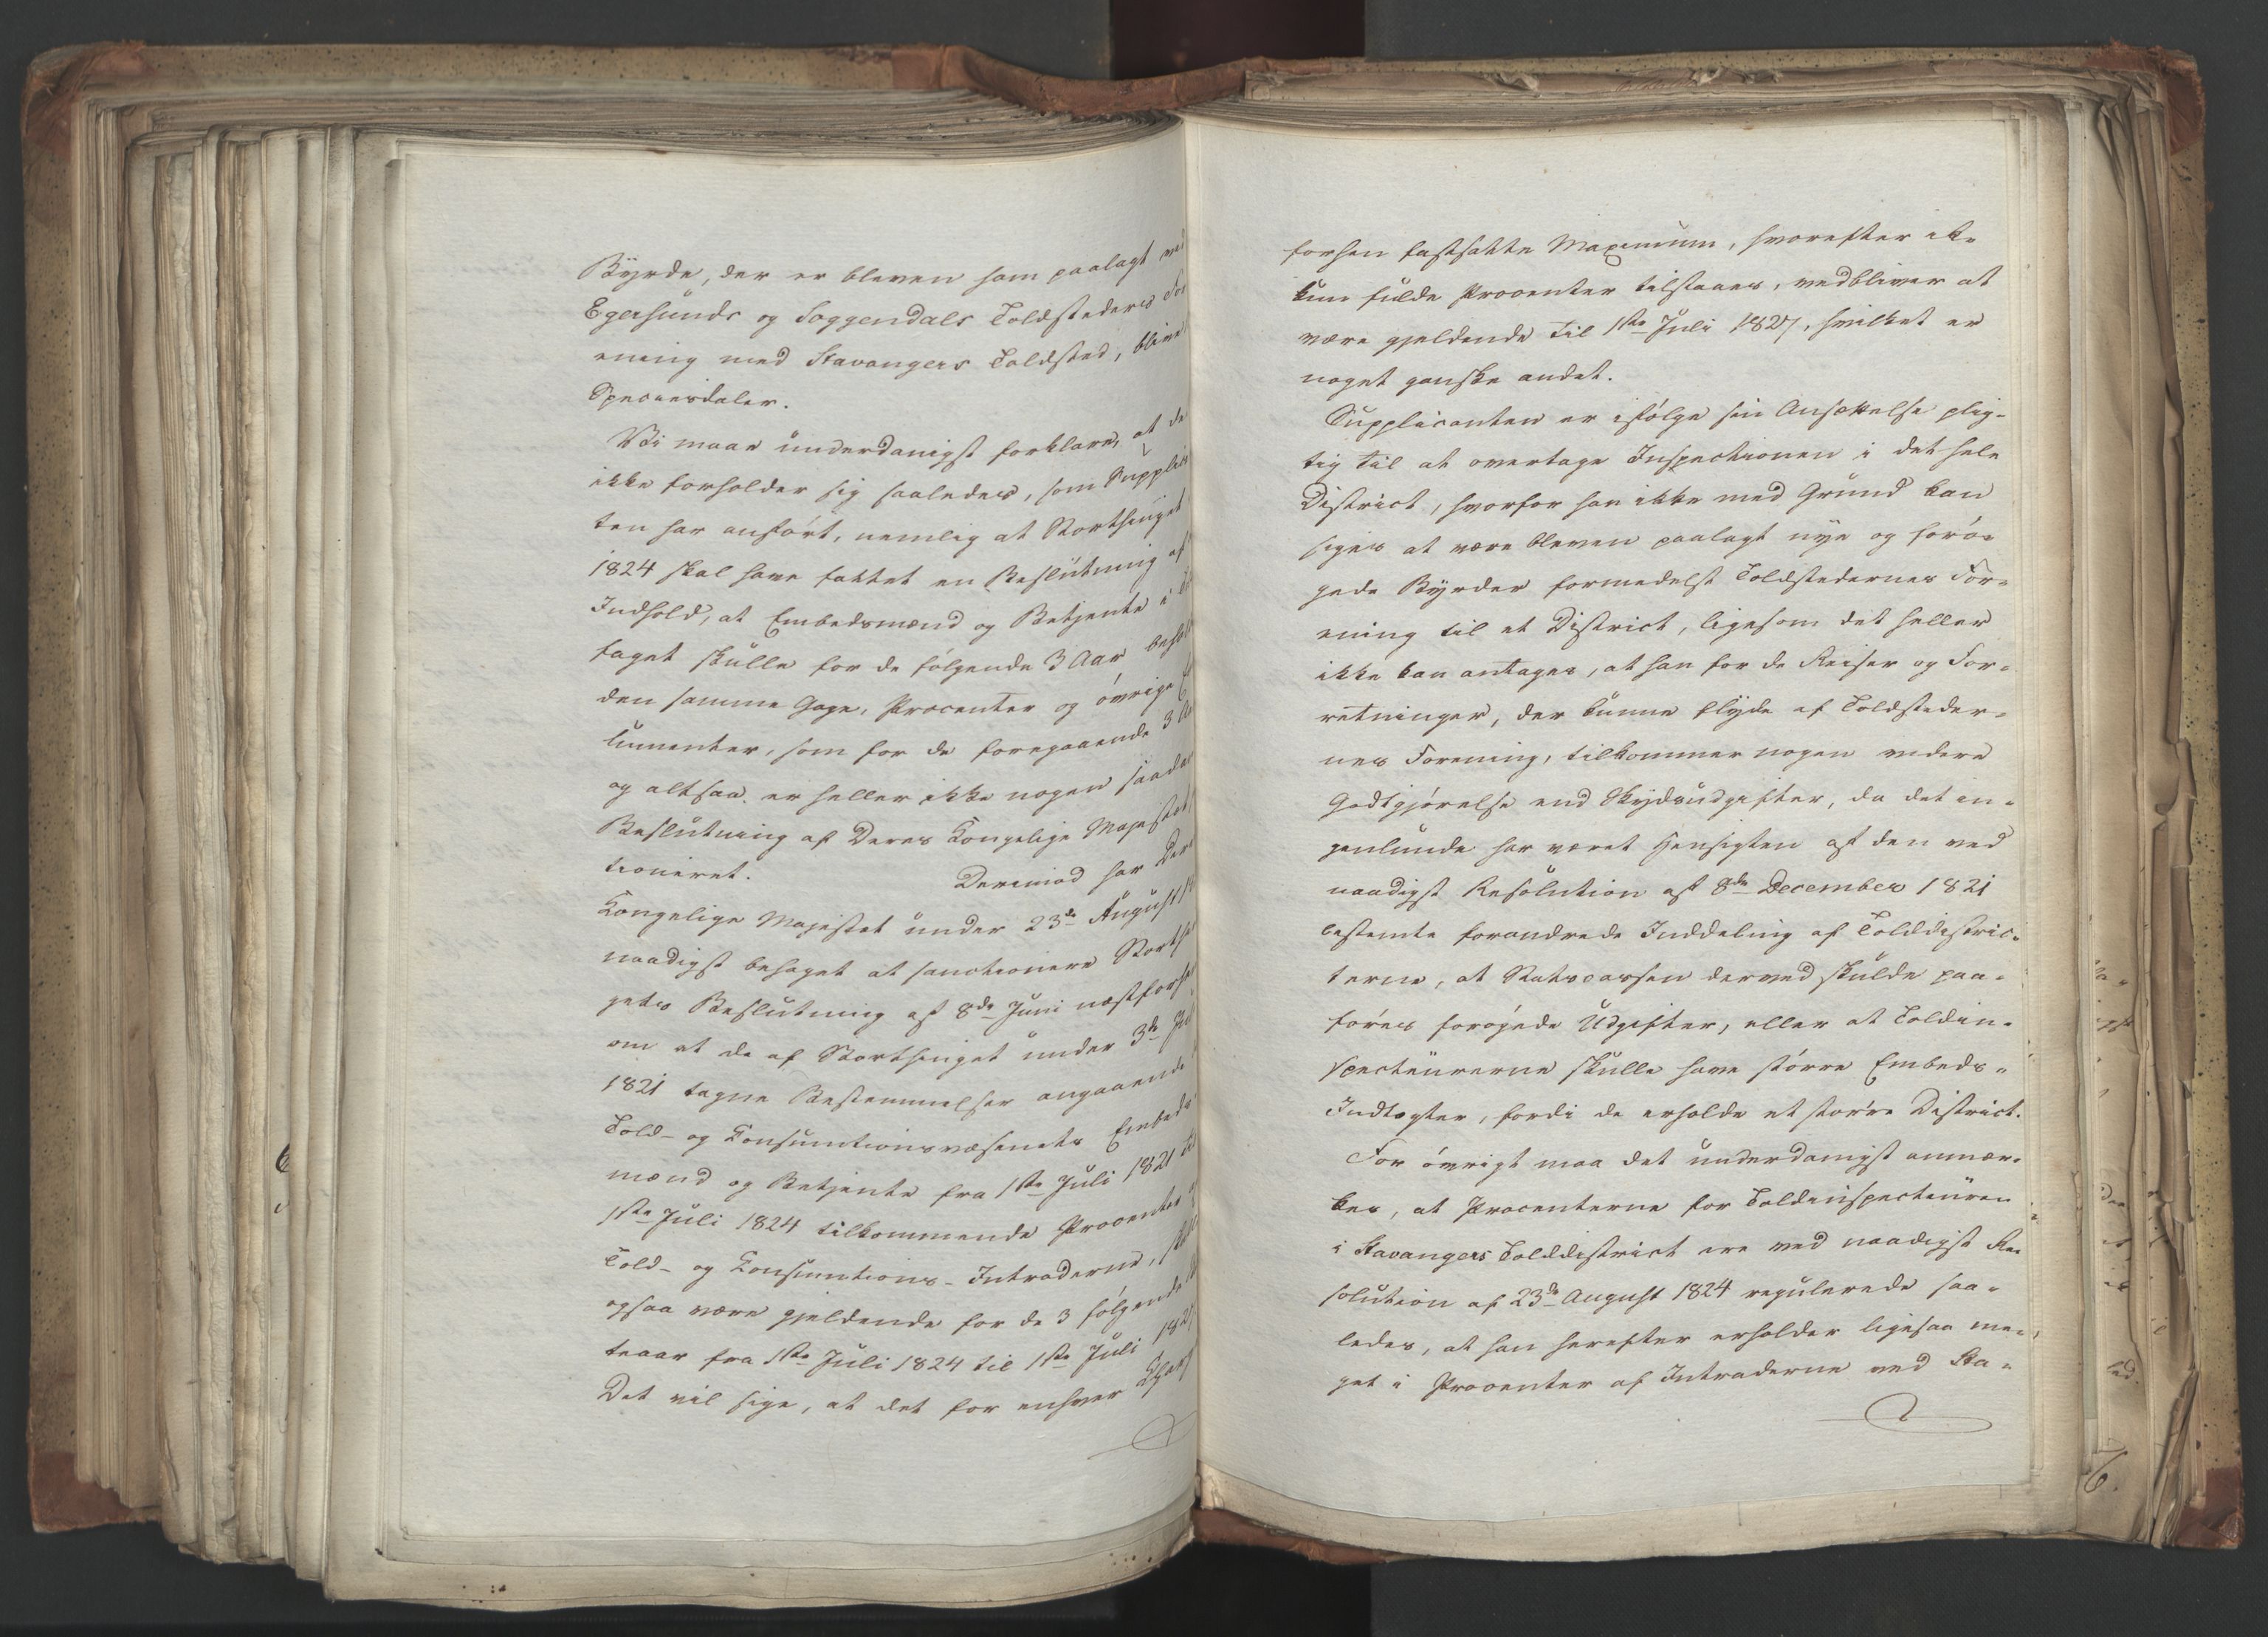 Byrde, der er bleven ham paalagt ved
Egersunds og Soggendals Toldsteders For
ening med Stavangers Toldsted, bliver
Speciesdaler.
Vi maae underdanigst forklare, at de
ikke forholder sig saaledes, som Supplic
ten har anført, nemlig at Storthinget
1824 skal have fattet en Beslutning af
Indhold, at Embedsmænd og Betjente i
faget skulle for de følgende 3 Aar behol
den samme Gage, Procenter og øvrige E
lumenter, som for de foregaaende 3 Aa
og altsaa er heller ikke nogen saadan
Beslutning af Deres Kongelige Majestæt
tioneret. Derimod har Der
Kongelige Majestæt under 23de August
naadigst behaget at sanctionere Storthi
gets Beslutning af 8de Juni næstforh
om at de af Storthinget under 3de Jul
1821 tagne Bestemmelser angaaende
Told- og Consumtionsvæsenets Embeds
mænd og Betjente fra 1ste Juli 1821 til
1ste Juli 1824 tilkommende Procenter
Told- og Consumtions-Intraderne, skal
ogsaa være gjeldende for de 3 følgende
teaar fra 1ste Juli 1824 til 1ste Juli 1827
Det vil sige, at det for enhver
forhen fastsatte Maximum, hvorefter ik-
kun fulde Procenter tilstaaes, vedbliver at
være gjeldende til 1ste Juli 1827, hvilket er
noget ganske andet.
Supplicanten er ifølge sin Ansættelse plig-
tig til at overtage Inspectionen i det hele
District, hvorfor han ikke med Grund kan
siges at være bleven paalagt nye og forø-
gede Byrder formedelst Toldstedernes For-
ening til et District, ligesom det heller
ikke kan antages, at han for de Reiser og For-
retninger, der kunne flyde af Toldsteder-
nes Forening, tilkommer nogen videre
Godtgjørelse end Skydsudgifter, da det in-
genlunde har været Hensigten af den ved
naadigst Resolution af 8de December 1821
bestemte forandrede Inddeling af Tolddistric-
terne, at Statscassen derved skulde paa-
føres forøgede Udgifter, eller at Toldin-
specteurerne skulle have større Embeds-
Indtægter, fordi de erholde et større District.
For øvrigt maa det underdanigst anmær-
kes, at Procenterne for Toldinspecteuren
i Stavangers Tolddistrict ere ved naadigst Re-
solution af 23de August 1824 regulerede saa-
ledes, at han herefter erholder ligesaa me-
get i Procenter af Intraderne ved Sta-